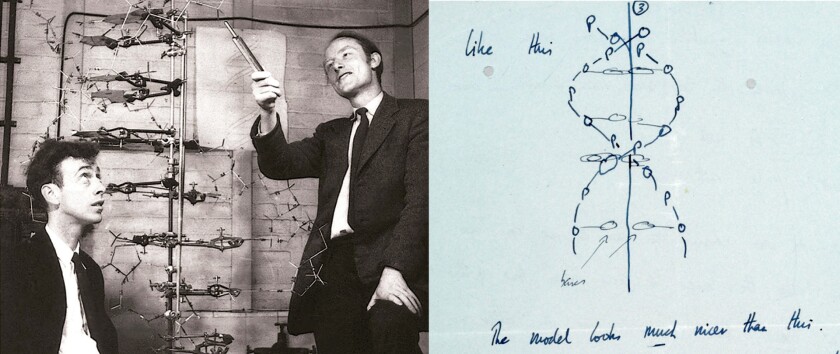 ③
Like this
P P
P P
P P
P P
P P
bases
The model looks much nicer than this.